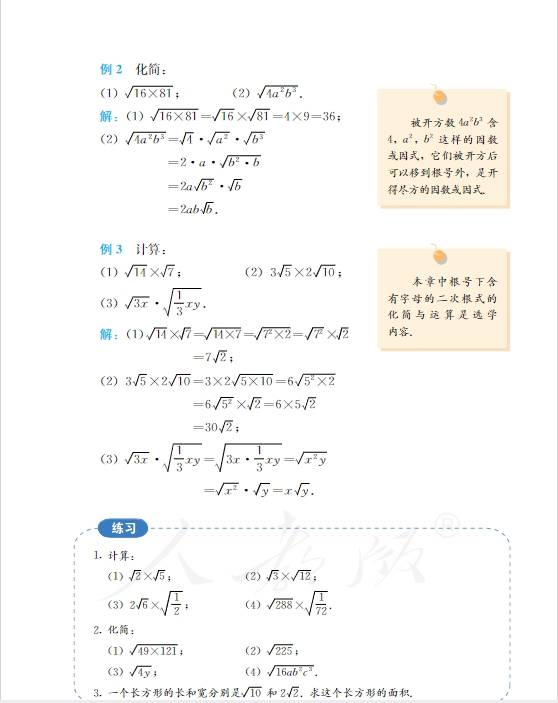 例 2 化简：
（1）√(16×81)；（2）√(4a²b³)．
解：（1）√(16×81)=√16×√81=4×9=36；
（2）√(4a²b³)=√4·√(a²)·√(b³)
=2·a·√(b²·b)
=2a√(b²)·√b
=2ab√b．
被开方数 4a²b³ 含
4，a²，b² 这样的因数
或因式，它们被开方后
可以移到根号外，是开
得尽方的因数或因式．
例 3 计算：
（1）√14×√7；（2）3√5×2√10；
（3）√(3x)·√(1/3 xy)．
本章中根号下含
有字母的二次根式的
化简与运算是选学
内容．
解：（1）√14×√7=√(14×7)=√(7²×2)=√(7²)×√2
=7√2；
（2）3√5×2√10=3×2√(5×10)=6√(5²×2)
=6√(5²)×√2=6×5√2
=30√2；
（3）√(3x)·√(1/3 xy)=√(3x·1/3 xy)=√(x²y)
=√(x²)·√y=x√y．
练习
1. 计算：
（1）√2×√5；（2）√3×√12；
（3）2√6×√(1/2)；（4）√288×√(1/72)．
2. 化简：
（1）√(49×121)；（2）√225；
（3）√(4y)；（4）√(16ab²c³)．
3. 一个长方形的长和宽分别是√10 和 2√2．求这个长方形的面积．
人教版®